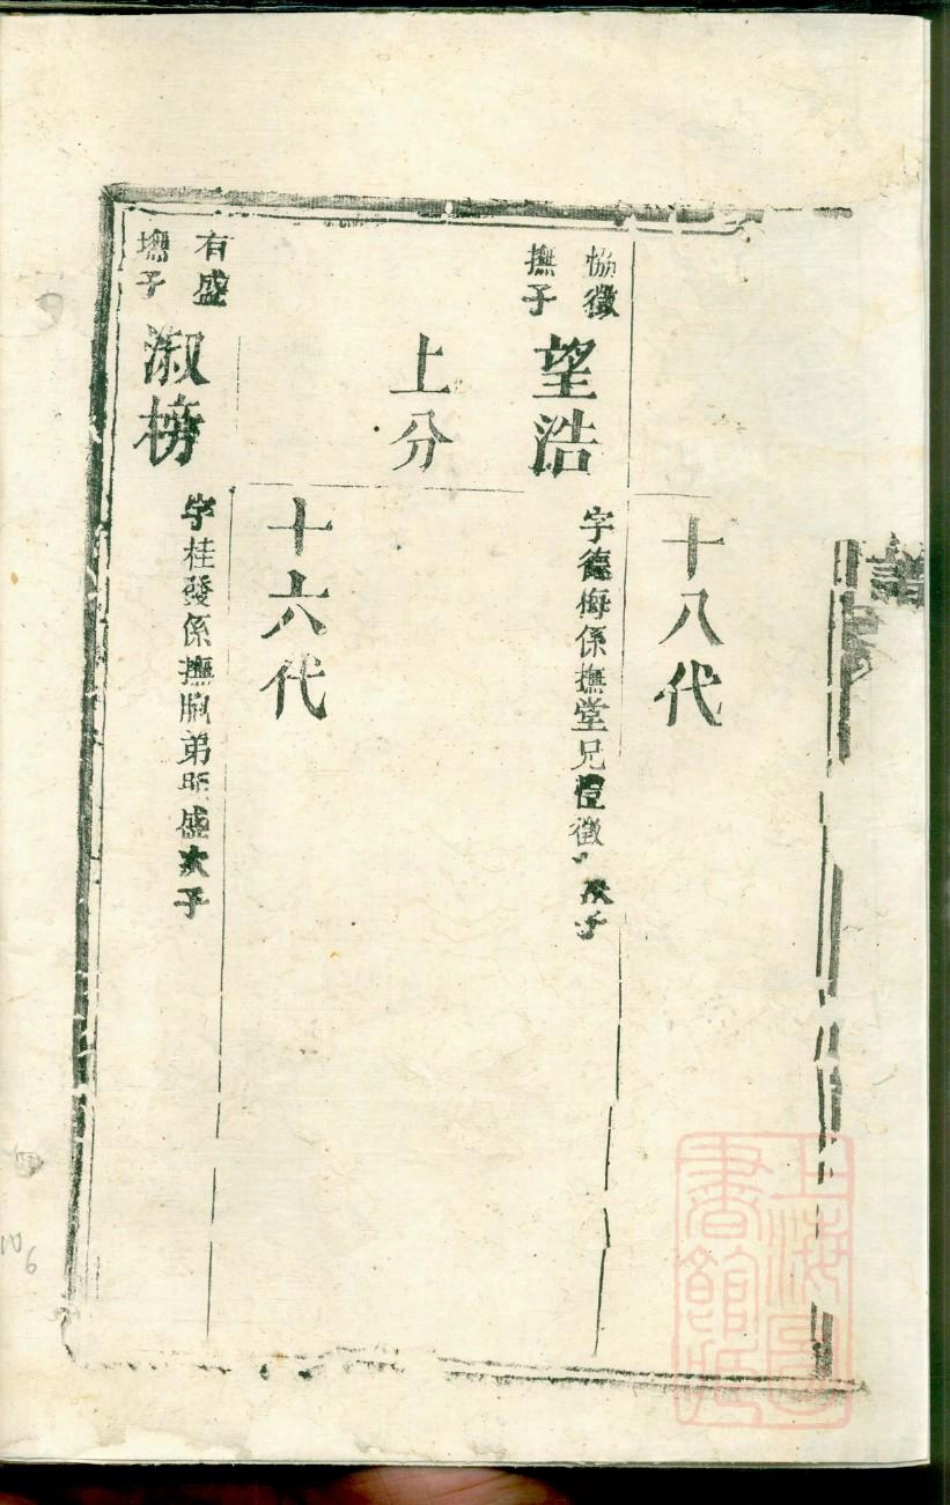 譜
十八代
協徵
撫子
望浩
字德梅係撫堂兄禮徵次子
上分
十六代
有盛
撫子
淑榜
字桂發係撫胞弟熙盛次子
上海圖
書館藏
106